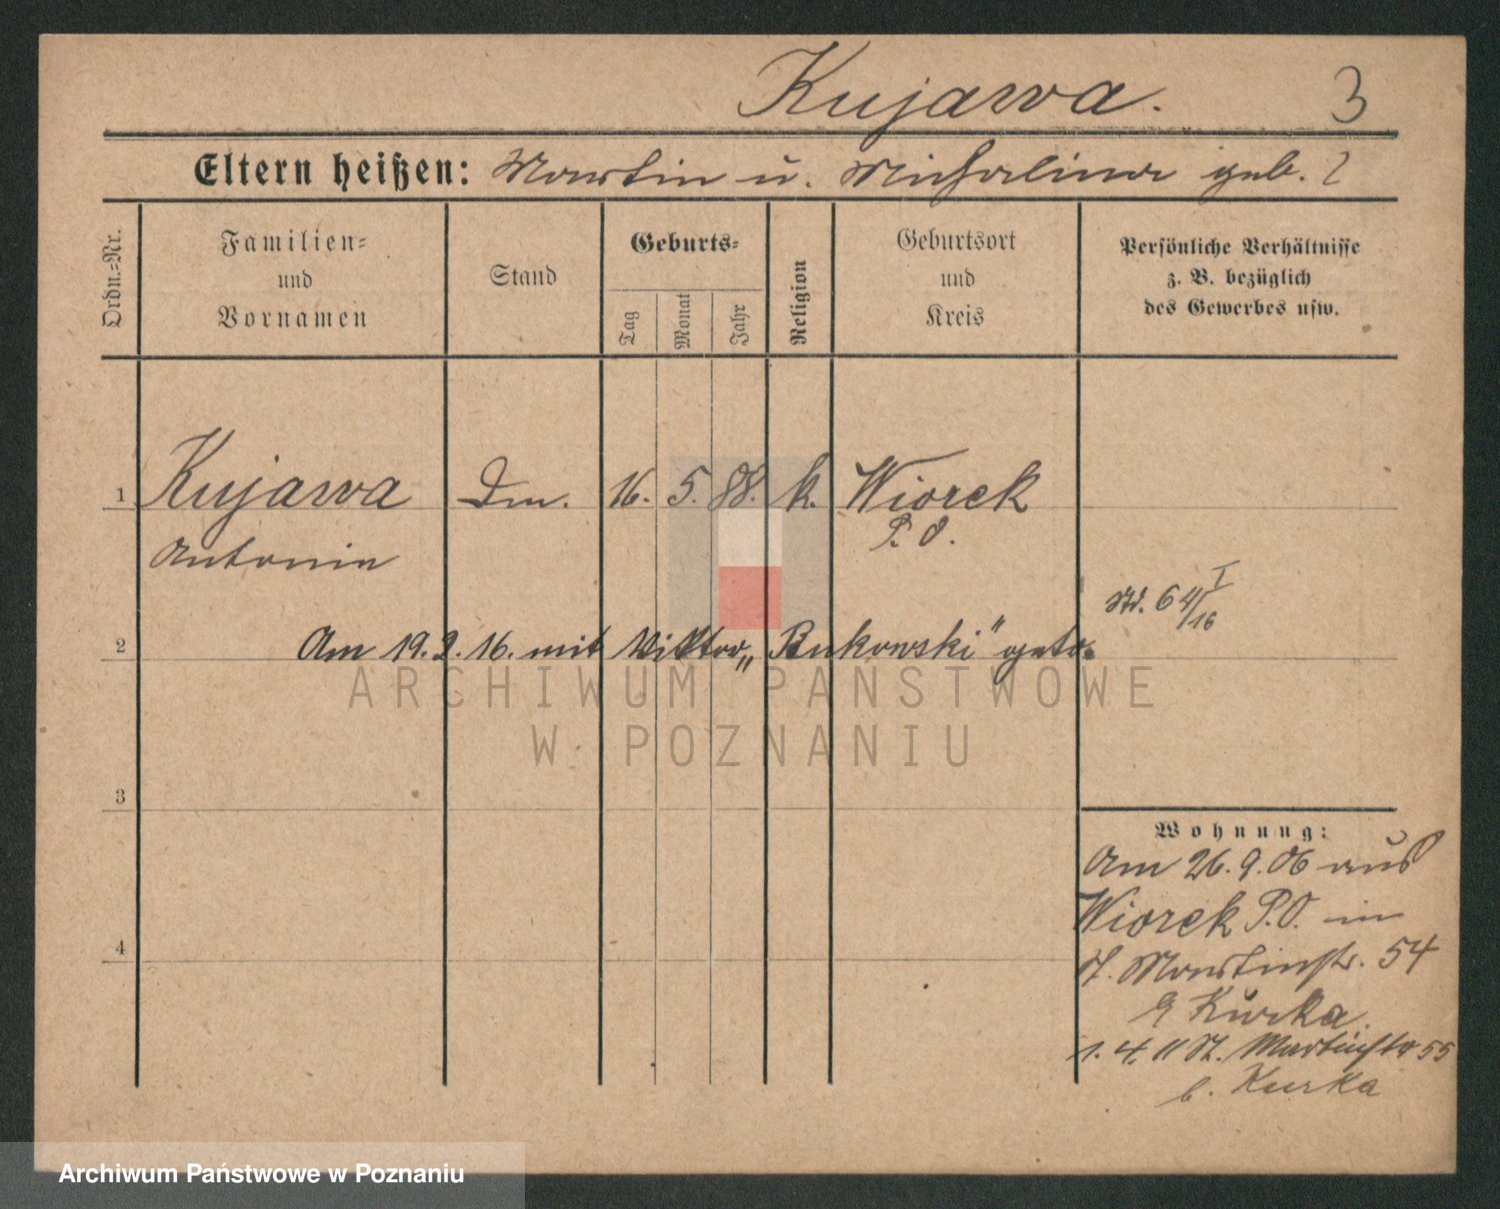 Kujawa. 3
Eltern heißen: Martin u. Michalina geb. ?
Ordn.=Nr.
Familien=
und
Vornamen
Stand
Geburts=
Tag Monat Jahr
Religion
Geburtsort
und
Kreis
Persönliche Verhältnisse
z. B. bezüglich
des Gewerbes usw.
1 Kujawa 16. 5. 88. k. Wiorek
Antonie P. O.
64/16 I
2 Am 19. 2. 16. mit Viktor „Bukowski“ getr.
3
Wohnung:
Am 26. 9. 06 aus
Wiorek P.O. in
4
St. Martinstr. 54
Kurka
1. 4. 11 St. Martinstr 55
b. Kurka
ARCHIWUM PAŃSTWOWE
W POZNANIU
Archiwum Państwowe w Poznaniu